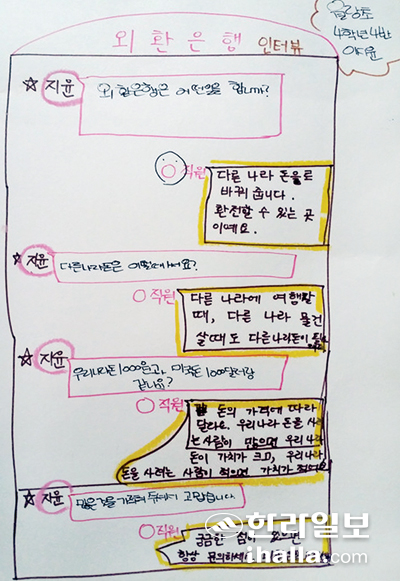 외환은행 인터뷰
4학년 4반
이지윤
☆ 지윤
외환은행은 어떤일을 합니까?
직원
다른 나라 돈을로
바꿔 줍니다.
환전할 수 있는 곳
이에요.
☆ 지윤
다른나라돈은 어떨때 써요?
직원
다른 나라에 여행갈
때, 다른 나라 물건
살때도 다른나라돈이
☆ 지윤
우리나라돈 1000원과 미국돈 1000달러랑
같나요?
직원
돈의 가격에 따라
달라요. 우리나라 돈을 사려
는 사람이 많으면 우리나라
돈이 가치가 크고, 우리나라
돈을 사려는 사람이 적으면 가치가 적어요
☆ 지윤
많은것을 가르쳐 주셔서 고맙습니다
직원
궁금한 점이 있으면
항상 문의하세요
한라일보
ihalla.com